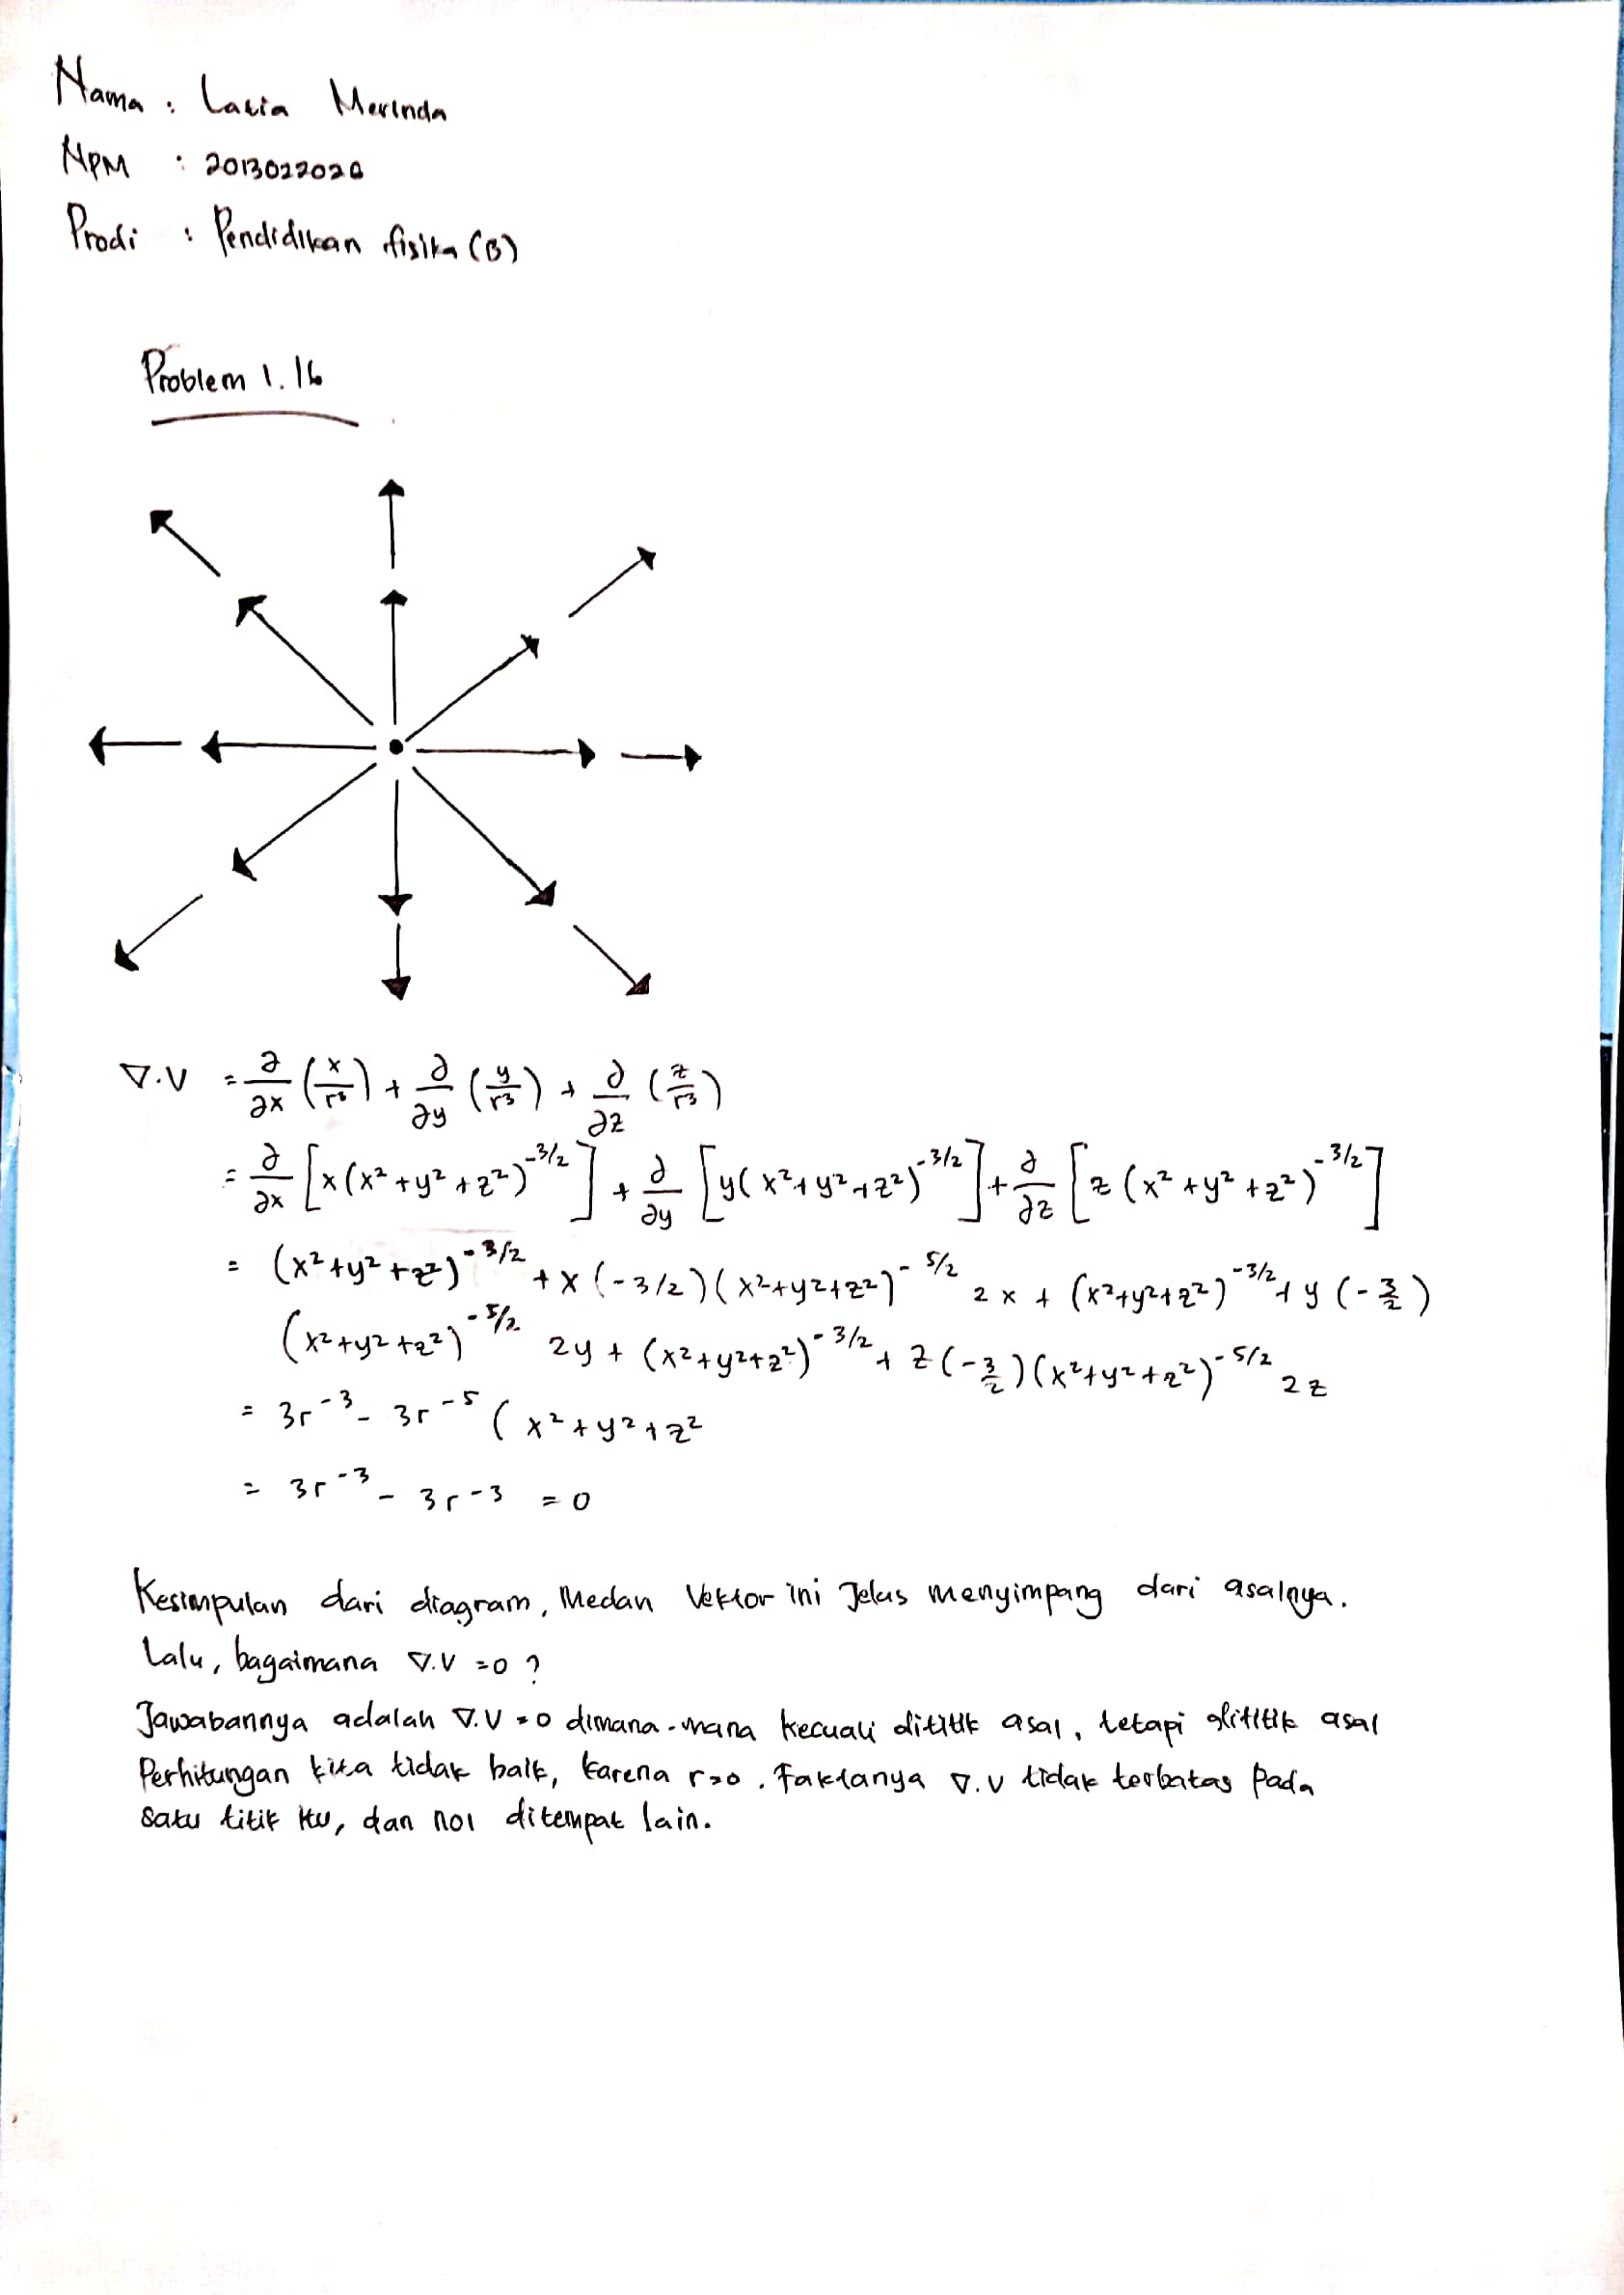 Nama : Latia Merinda
NPM : 2013022020
Prodi : Pendidikan fisika (B)
Problem 1.16
∇.V = ∂/∂x (x/r³) + ∂/∂y (y/r³) + ∂/∂z (z/r³)
= ∂/∂x [x(x²+y²+z²)^-3/2] + ∂/∂y [y(x²+y²+z²)^-3/2] + ∂/∂z [z(x²+y²+z²)^-3/2]
= (x²+y²+z²)^-3/2 + x(-3/2)(x²+y²+z²)^-5/2 2x + (x²+y²+z²)^-3/2 + y(-3/2)
(x²+y²+z²)^-5/2 2y + (x²+y²+z²)^-3/2 + z(-3/2)(x²+y²+z²)^-5/2 2z
= 3r^-3 - 3r^-5 (x²+y²+z²
= 3r^-3 - 3r^-3 = 0
Kesimpulan dari diagram, Medan Vektor ini Jelas menyimpang dari asalnya.
Lalu, bagaimana ∇.V = 0 ?
Jawabannya adalah ∇.V = 0 dimana-mana kecuali dititik asal, tetapi dititik asal
Perhitungan kita tidak baik, karena r=0. Faktanya ∇.V tidak terbatas Pada
satu titik itu, dan nol ditempat lain.